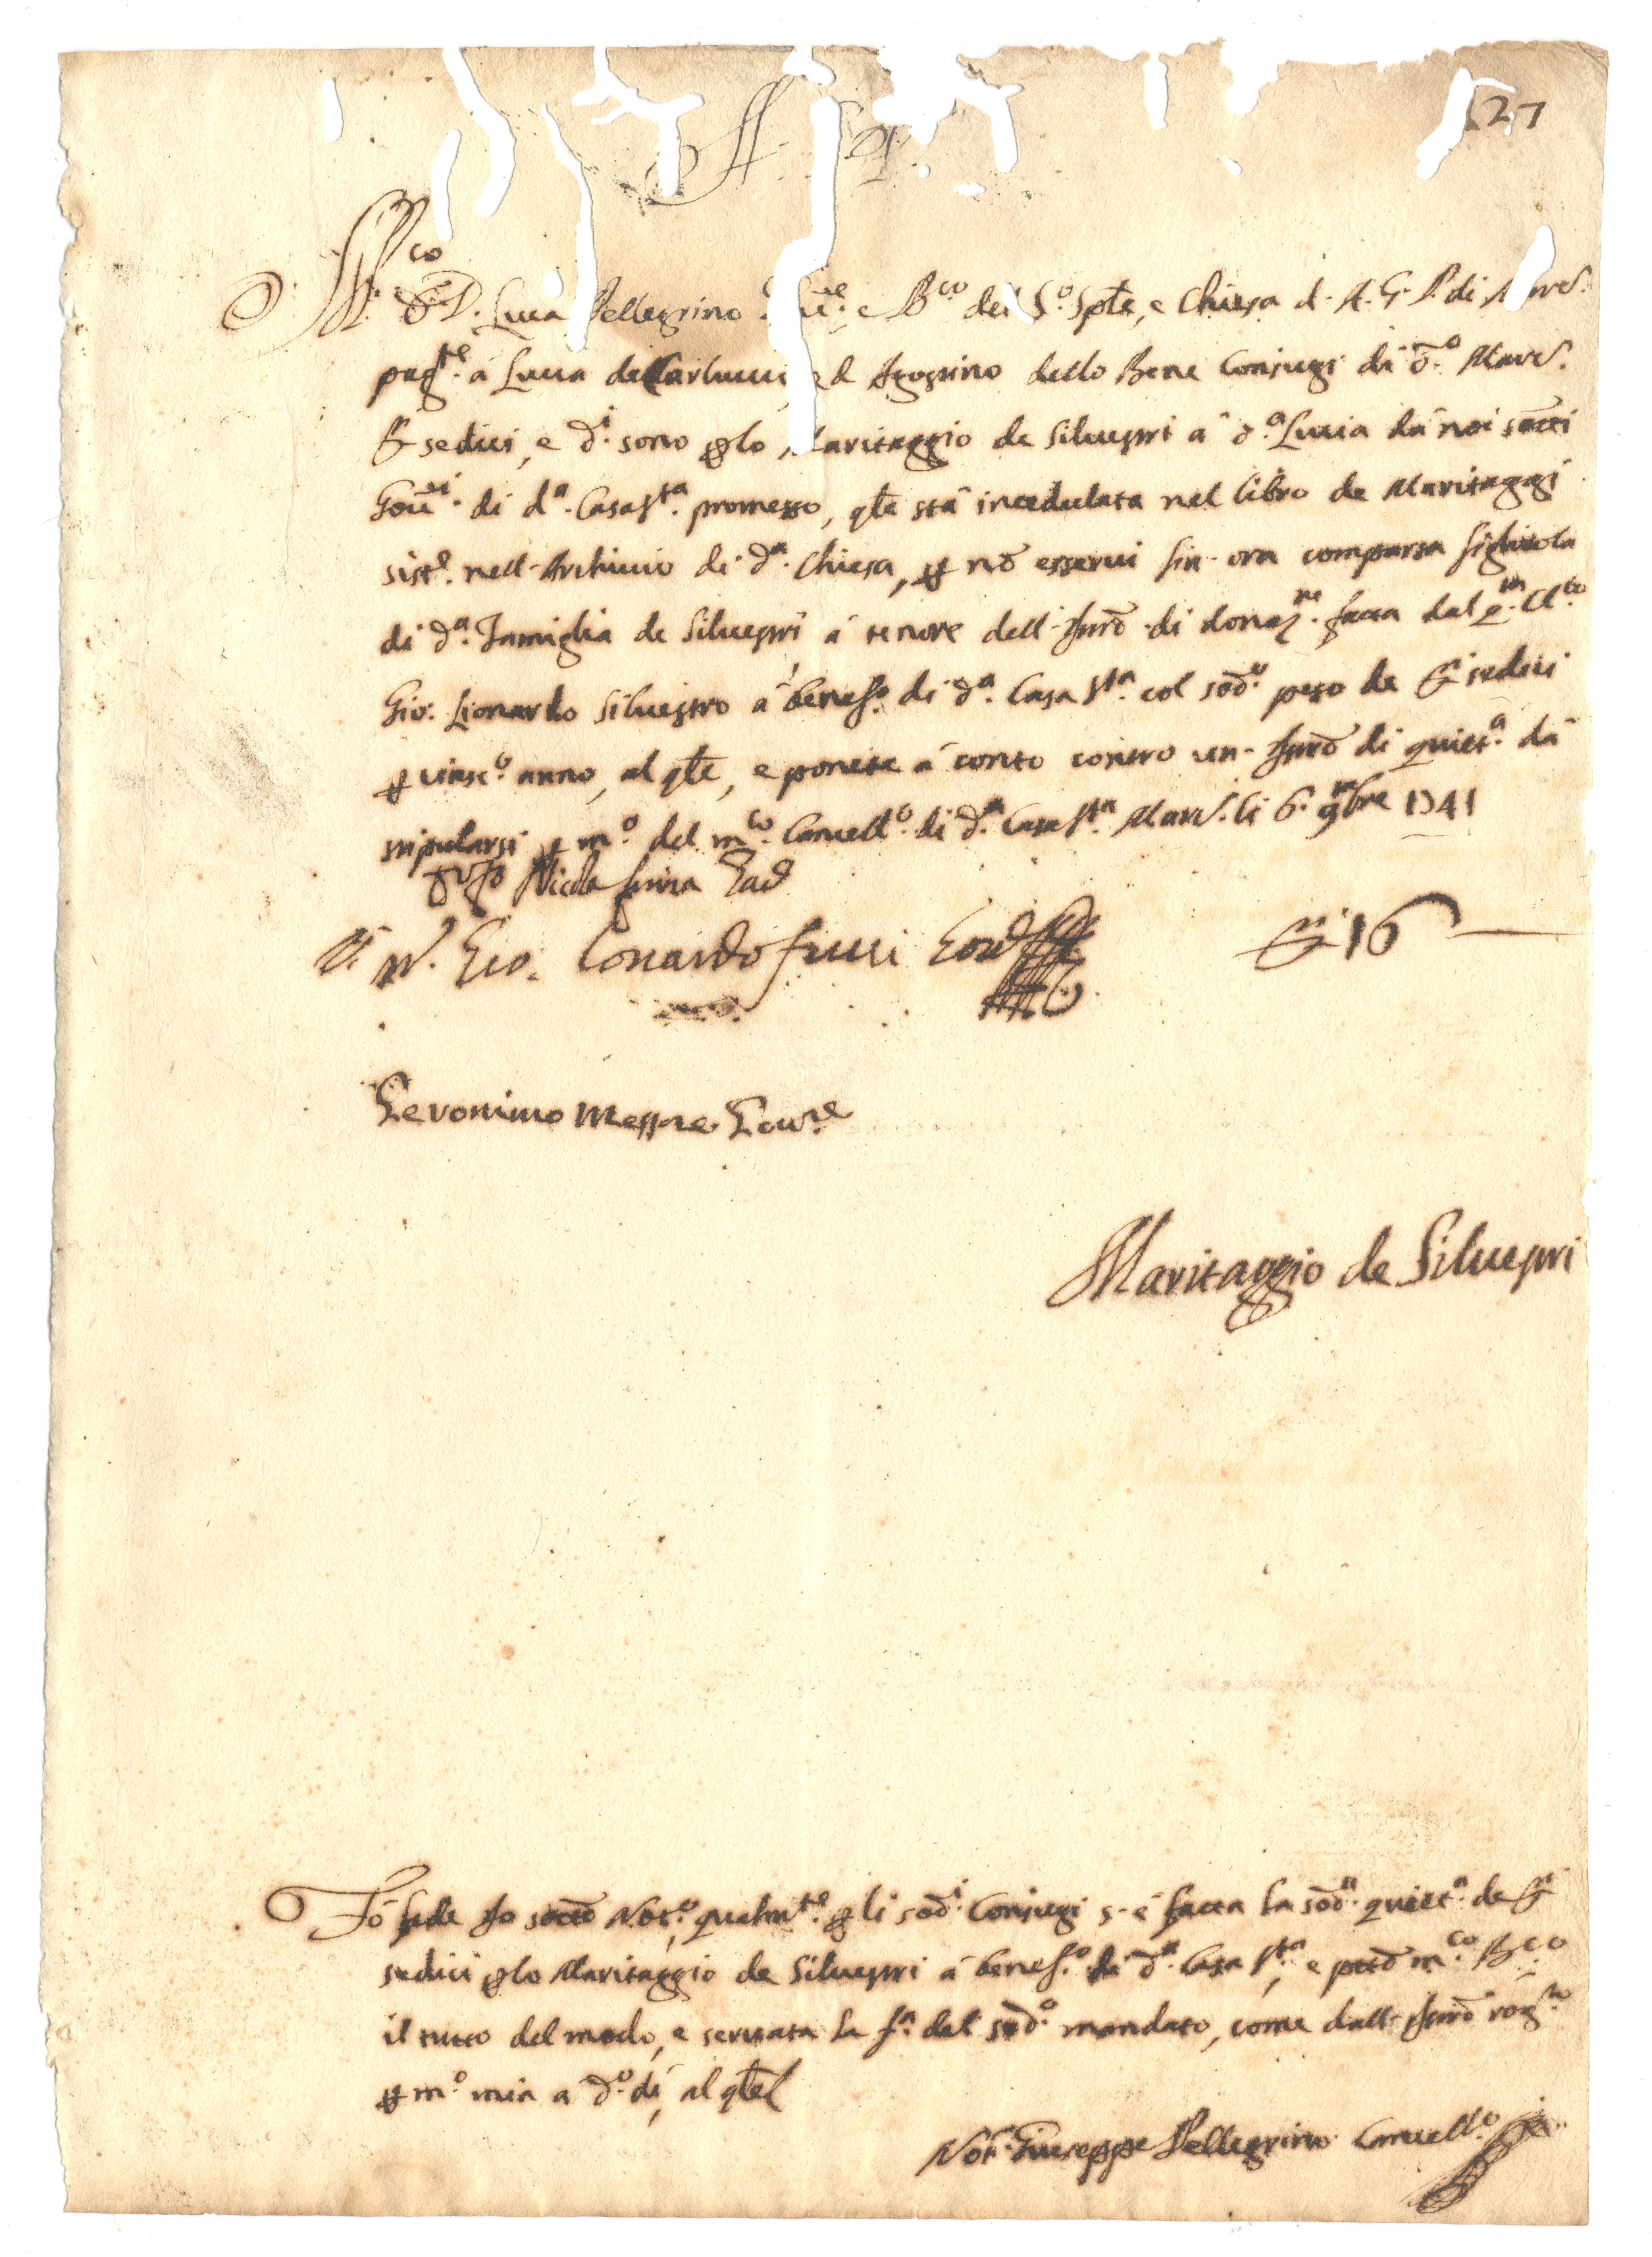 127
M.co D.r D. Luca Pellegrino e B.co del S.o Sp̄le, e Chiesa d. A. G. P. di
pag.te à Lucia de Carlucci ed Agostino dello Bene Coniugi di d.o Mard.
sedici, e d.i sono p lo Maritaggio de Silvestri à d.a Lucia dà noi sōtti
Gov.ri di d.a Casa S.ta promesso, qle stà incedulata nel libro de Maritaggi
sist.e nell-Archivio di d.a Chiesa, p nō esservi sin-ora comparsa figliuola
di d.a Famiglia de Silvestri à tenore dell-Istrō di donaz.ne fatta dal q.m Cl.co
Gio: Lionardo Silvestro à benef.o di d.a Casa S.ta col sōd.o peso de sedici
p ciasc.o anno, al qle, e ponete à conto contro un-Istrō di quiet.a dà
stipularsi p m.o del m.co Cancell.o di d.a Casa S.ta Mard. li 6. 9mbre 1741
Nicola
N. Gio. Lonardo
16
Geronimo Mastre Gov.re
Maritaggio de Silvestri
Fò fede Io sōtto Not.o, qualm.te p li sōd.i Coniugi s-è fatta la sōd.a quiet.a de
sedici p lo Maritaggio de Silvestri à benef.o di d.a Casa S.ta, e p m.co B.co
il tutto del modo, e servata la f.a del sōd.o mandato, come dall-Istrō rog.to
p m.o mia a d.o dì, al qle
Not.r Giuseppe Pellegrino Cancell.o